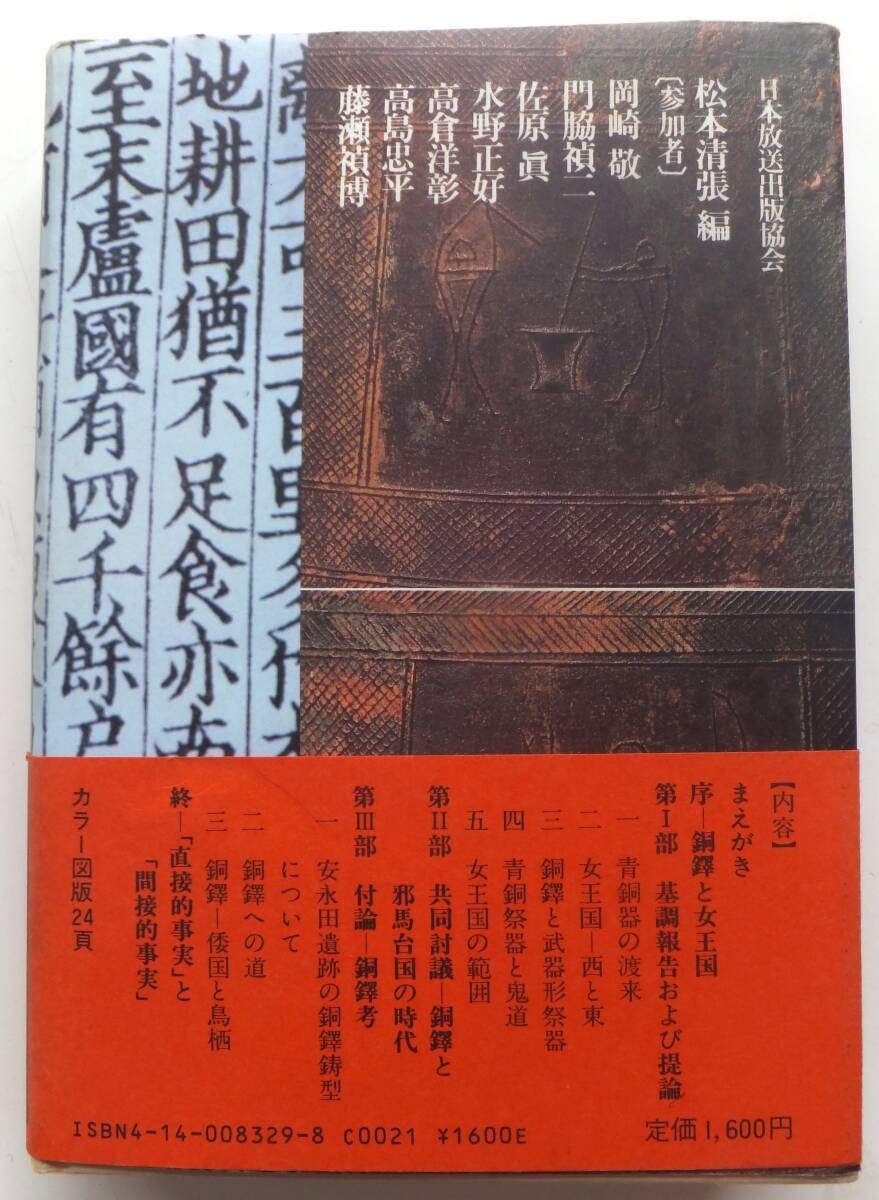 日本放送出版協会
松本清張 編
〔参加者〕
岡崎 敬
門脇禎二
佐原 眞
水野正好
高倉洋彰
高島忠平
藤瀬禎博
地耕田猶不足食亦南
至末盧國有四千餘戶
【内容】
まえがき
序―銅鐸と女王国
第Ⅰ部 基調報告および提論
一 青銅器の渡来
二 女王国―西と東
三 銅鐸と武器形祭器
四 青銅祭器と鬼道
五 女王国の範囲
第Ⅱ部 共同討議―銅鐸と
邪馬台国の時代
第Ⅲ部 付論―銅鐸考
一 安永田遺跡の銅鐸鋳型
について
二 銅鐸への道
三 銅鐸―倭国と鳥栖
終―「直接的事実」と
「間接的事実」
カラー図版24頁
ISBN4-14-008329-8 C0021 ¥1600E
定価1,600円